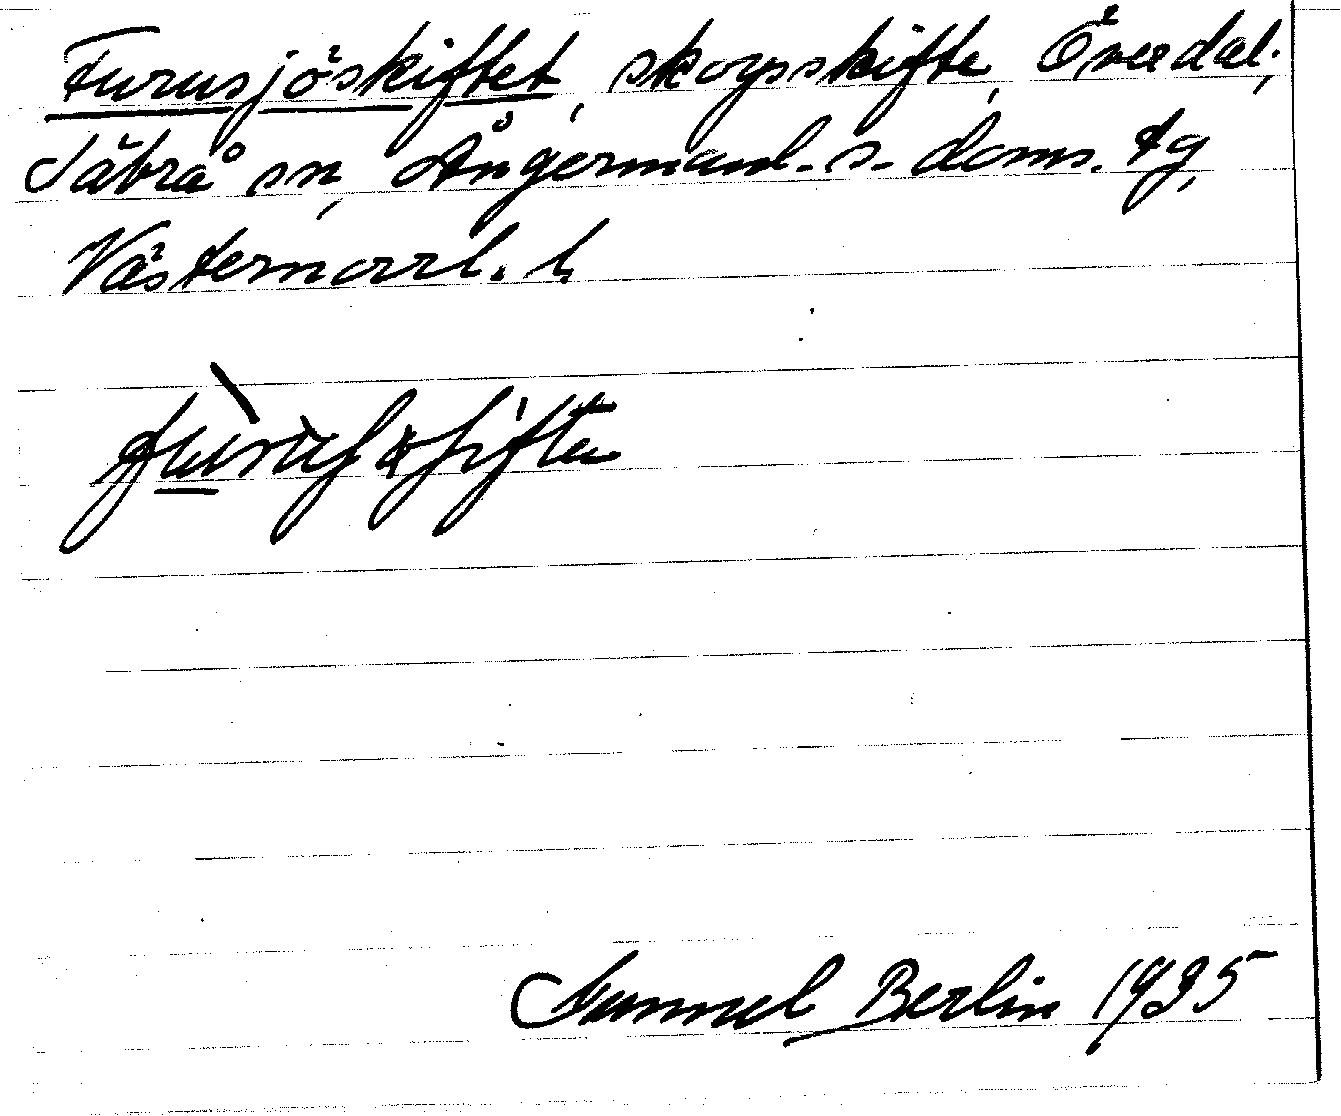 Furusjöskiftet, skogsskifte, Överdal;
Säbrå sn, Ångermanl. s. doms. tg,
Västernorrl. l.
Gunnel Berlin 1935